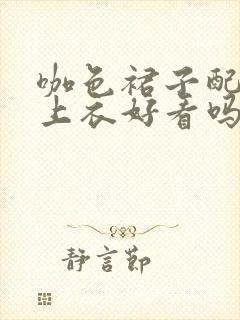 咖色裙子配
上衣好看吗
静言节